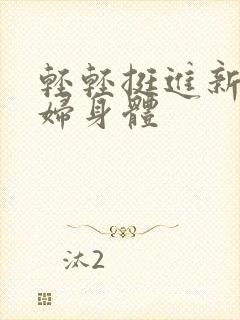 輕輕挺進新
婦身體
汰2